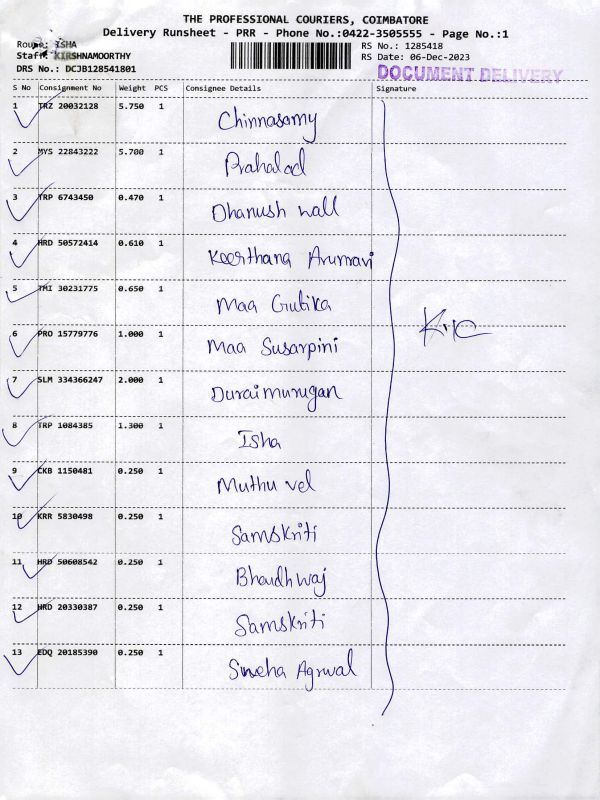 THE PROFESSIONAL COURIERS, COIMBATORE
Delivery Runsheet - PRR - Phone No.:0422-3505555 - Page No.:1
Route: ISHA
Staff: KIRSHNAMOORTHY
DRS No.: DCJB128541801
RS No.: 1285418
RS Date: 06-Dec-2023
DOCUMENT DELIVERY
S No Consignment No Weight PCS Consignee Details Signature
1 TRZ 20032128 5.750 1 Chinnasamy
2 MYS 22843222 5.700 1 Prahalad
3 TRP 6743450 0.470 1 Dhanush hall
4 HRD 50572414 0.610 1 Keerthana
5 TMI 30231775 0.650 1 Maa Gutika
6 PRO 15779776 1.000 1 Maa Susarpini
7 SLM 334366247 2.000 1 Duraimurugan
8 TRP 1084385 1.300 1 Isha
9 CKB 1150481 0.250 1 Muthu vel
10 KRR 5830498 0.250 1 Samskriti
11 HRD 50608542 0.250 1 Bhaudhwaj
12 HRD 20330387 0.250 1 Samskriti
13 EDQ 20185390 0.250 1 Sneha Agrwal